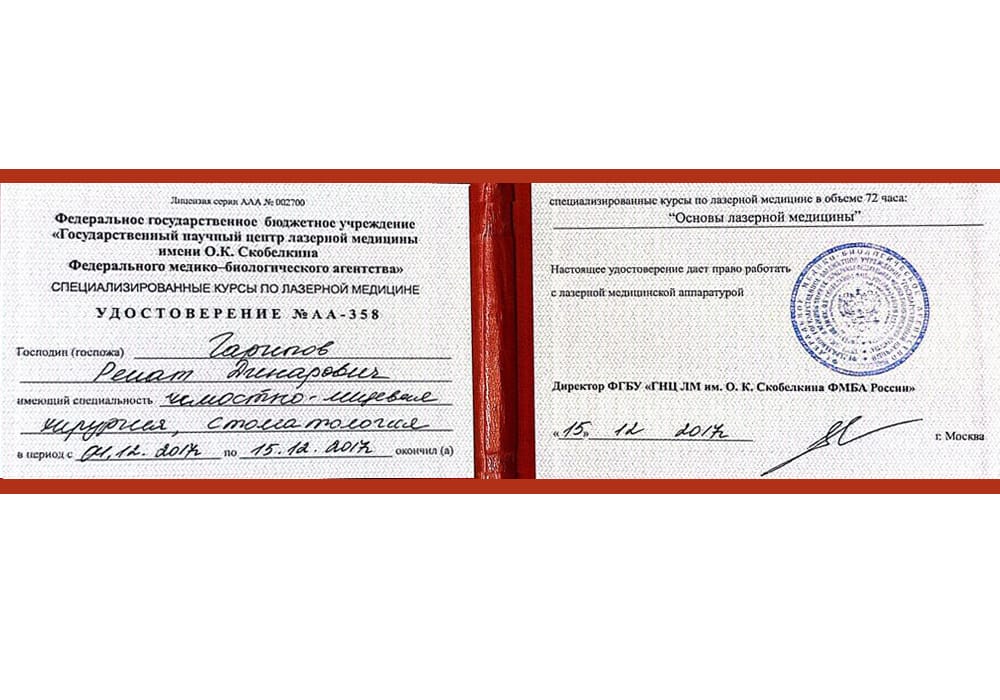 Лицензия серии ААА № 002700
Федеральное государственное бюджетное учреждение
«Государственный научный центр лазерной медицины
имени О.К. Скобелкина
Федерального медико–биологического агентства»
СПЕЦИАЛИЗИРОВАННЫЕ КУРСЫ ПО ЛАЗЕРНОЙ МЕДИЦИНЕ
УДОСТОВЕРЕНИЕ №АА-358
Господин (госпожа) Гарипов
Ренат Динарович
имеющий специальность челюстно-лицевая
хирургия, стоматология
в период с 01.12.2017г по 15.12.2017г окончил (а)
специализированные курсы по лазерной медицине в объеме 72 часа:
“Основы лазерной медицины”
Настоящее удостоверение дает право работать
с лазерной медицинской аппаратурой
Директор ФГБУ «ГНЦ ЛМ им. О. К. Скобелкина ФМБА России»
«15» 12 2017г г. Москва